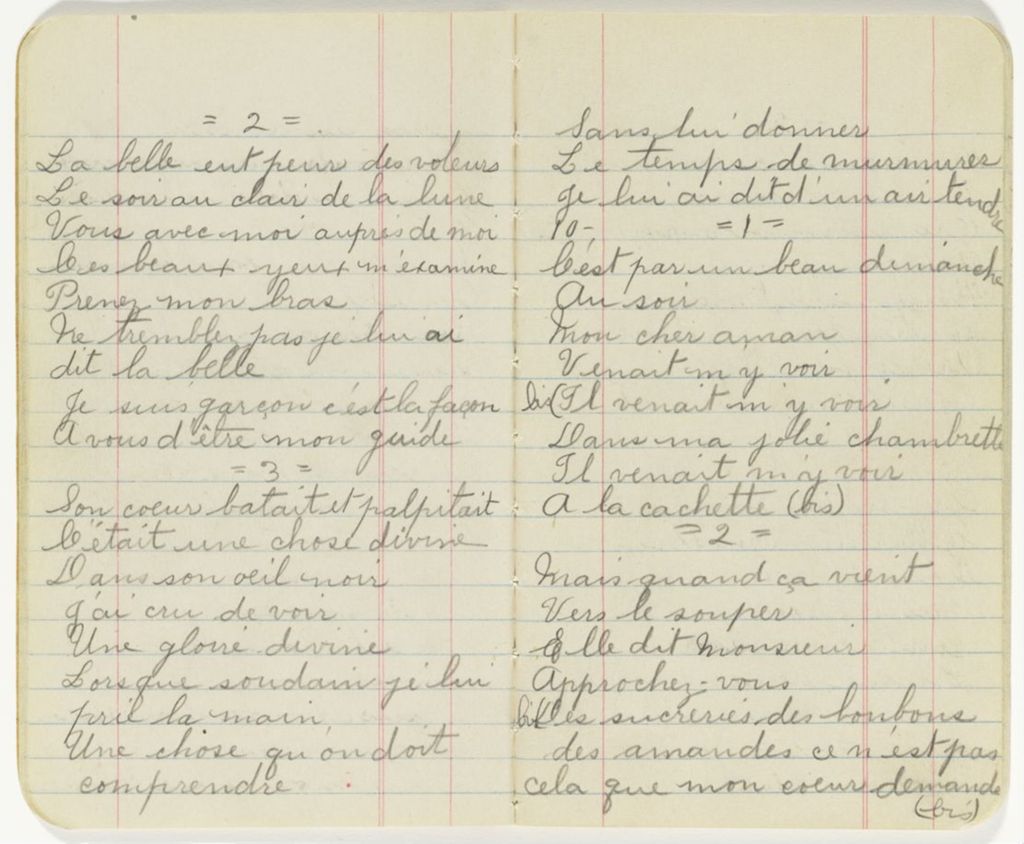 = 2 =
La belle eut peur des voleurs
Le soir au clair de la lune
Vous avec moi auprès de moi
Ces beaux yeux m'examine
Prenez mon bras
Ne tremblez pas je lui ai
dit la belle
Je suis garçon c'est la façon
A vous d'être mon guide
= 3 =
Son coeur batait et palpitait
C'était une chose divine
Dans son oeil noir
J'ai cru de voir
Une gloire divine
Lorsque soudain je lui
prie la main
Une chose qu'on doit
comprendre
Sans lui donner
Le temps de murmurer
Je lui ai dit d'un air tendre
10- = 1 =
C'est par un beau dimanche
Au soir
Mon cher aman
Venait m'y voir
bis (Il venait m'y voir
Dans ma jolie chambrette
Il venait m'y voir
A la cachette (bis)
= 2 =
Mais quand ça vient
Vers le souper
Elle dit Monsieur
Approchez-vous
bis (Les sucreries des bonbons
des amandes ce n'est pas
cela que mon coeur demande
(bis)